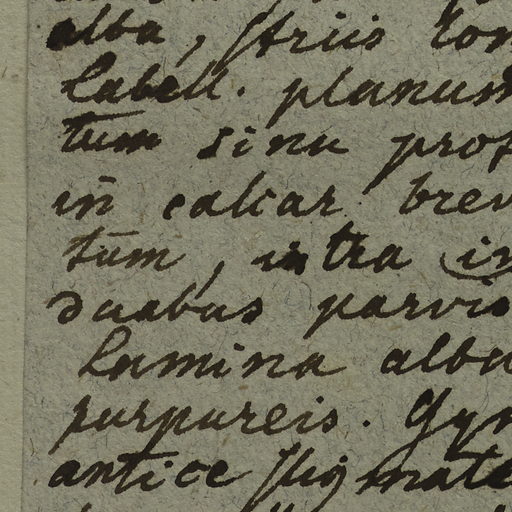 alba, striis lon
Labell. planum
tum sinu prof
in̄ calcar brev
tūm, intra in
duabus parvis
Lamina alba
purpureis. Gyn
antice stigmate